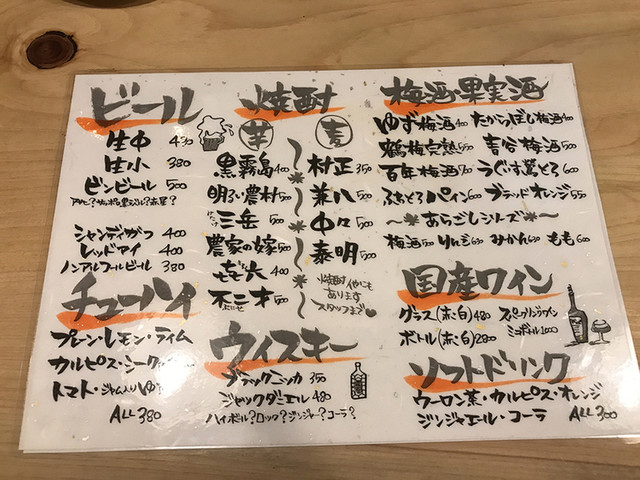 ビール
生中 430
生小 380
ビンビール 500
シャンディガフ 400
レッドアイ 400
ノンアルコールビール 380
チューハイ
プレーン・レモン・ライム
カルピス・シークヮーサー
トマト・ジャム入りゆず
ALL 380
焼酎
芋
黒霧島 400
明るい農村 500
三岳 500
農家の嫁 500
㐂六 400
不二才 500
麦
村正 350
兼八 500
中々 500
泰明 500
焼酎 他にも
あります
スタッフまで
ウイスキー
ブラックニッカ 350
ジャックダニエル 480
ハイボール?ロック?ジンジャー?コーラ?
梅酒・果実酒
ゆず梅酒 400 たからぼし梅酒 400
鶴梅完熟 550 吉谷梅酒 500
百年梅酒 500 うぐいすとろ 600
ぶちとろパイン 600 ブラッドオレンジ 550
〜あらごしシリーズ〜
梅酒 500 りんご 630 みかん 600 もも 600
国産ワイン
グラス(赤・白) 480
ボトル(赤・白) 2800
ミニボトル 1000
ソフトドリンク
ウーロン茶・カルピス・オレンジ
ジンジャエール・コーラ ALL 300